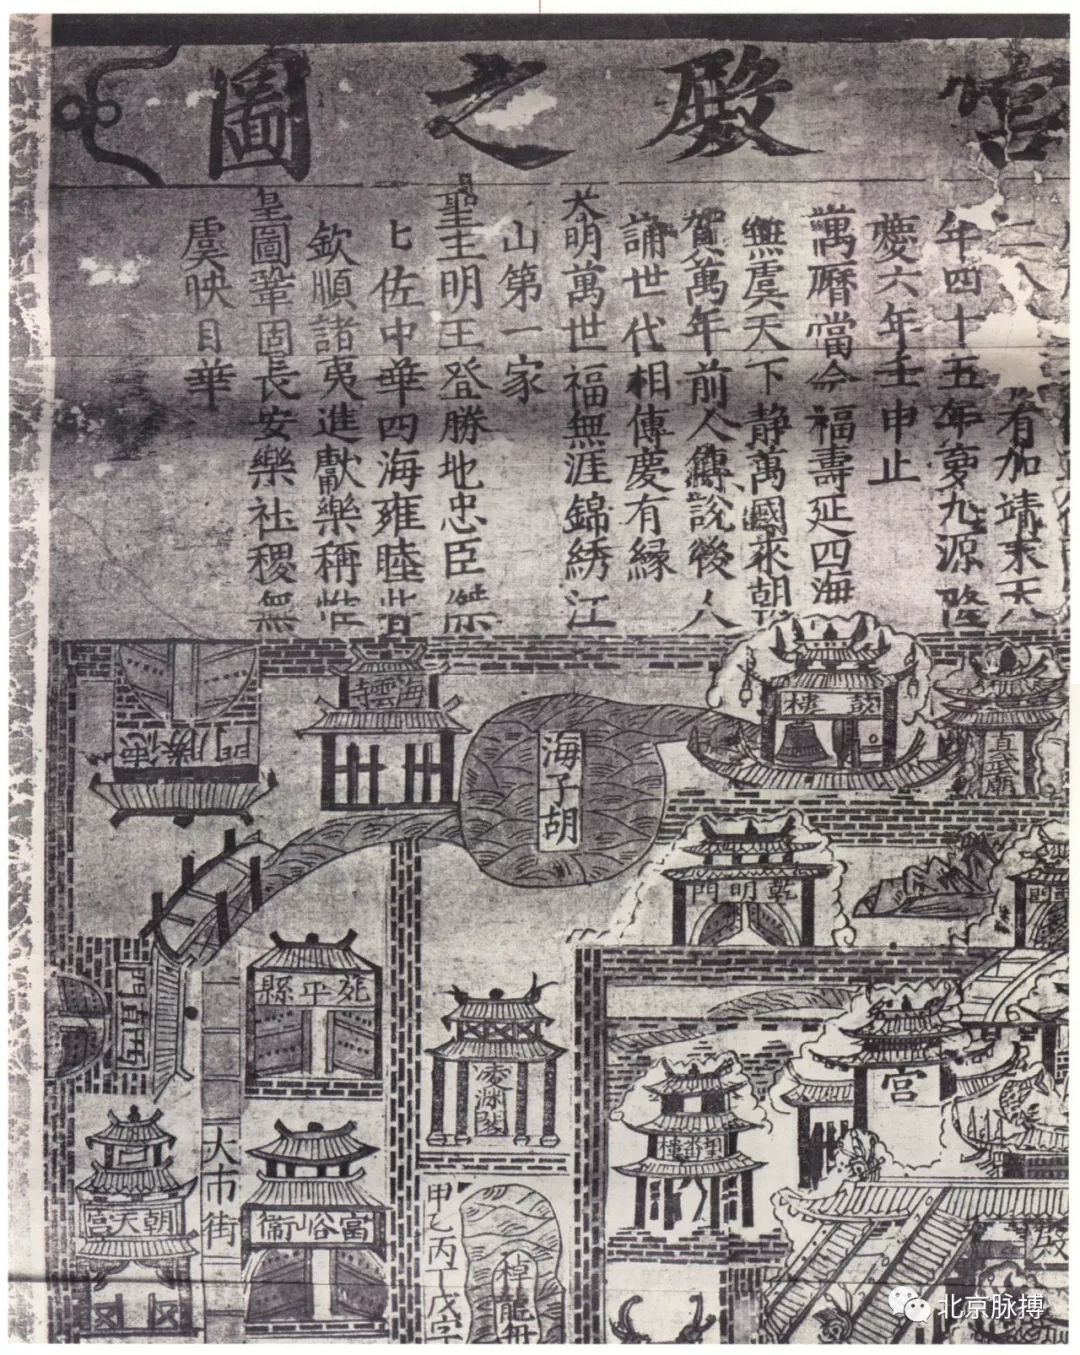 宮殿之圖
二八有加靖末天
年四十五年夢九源隆
慶六年壬申止
萬曆當今福壽延四海
無虞天下静萬國來朝
賀萬年前人傳說後人
誦世代相傳慶有緣
大明萬世福無涯錦綉江
山第一家
聖主明王登勝地忠臣傑
七佐中華四海雍睦皆
欽順諸夷進獻樂稱
皇圖鞏固長安樂社稷無
虞映日華
鼓樓
真武廟
海雲寺
德勝門
海子胡
乾明門
宛平縣
凌渊閣
宮
大市街
富峪衞
朝天宮
甲乙丙丁戊
棹龍舟
殿
北京脉搏